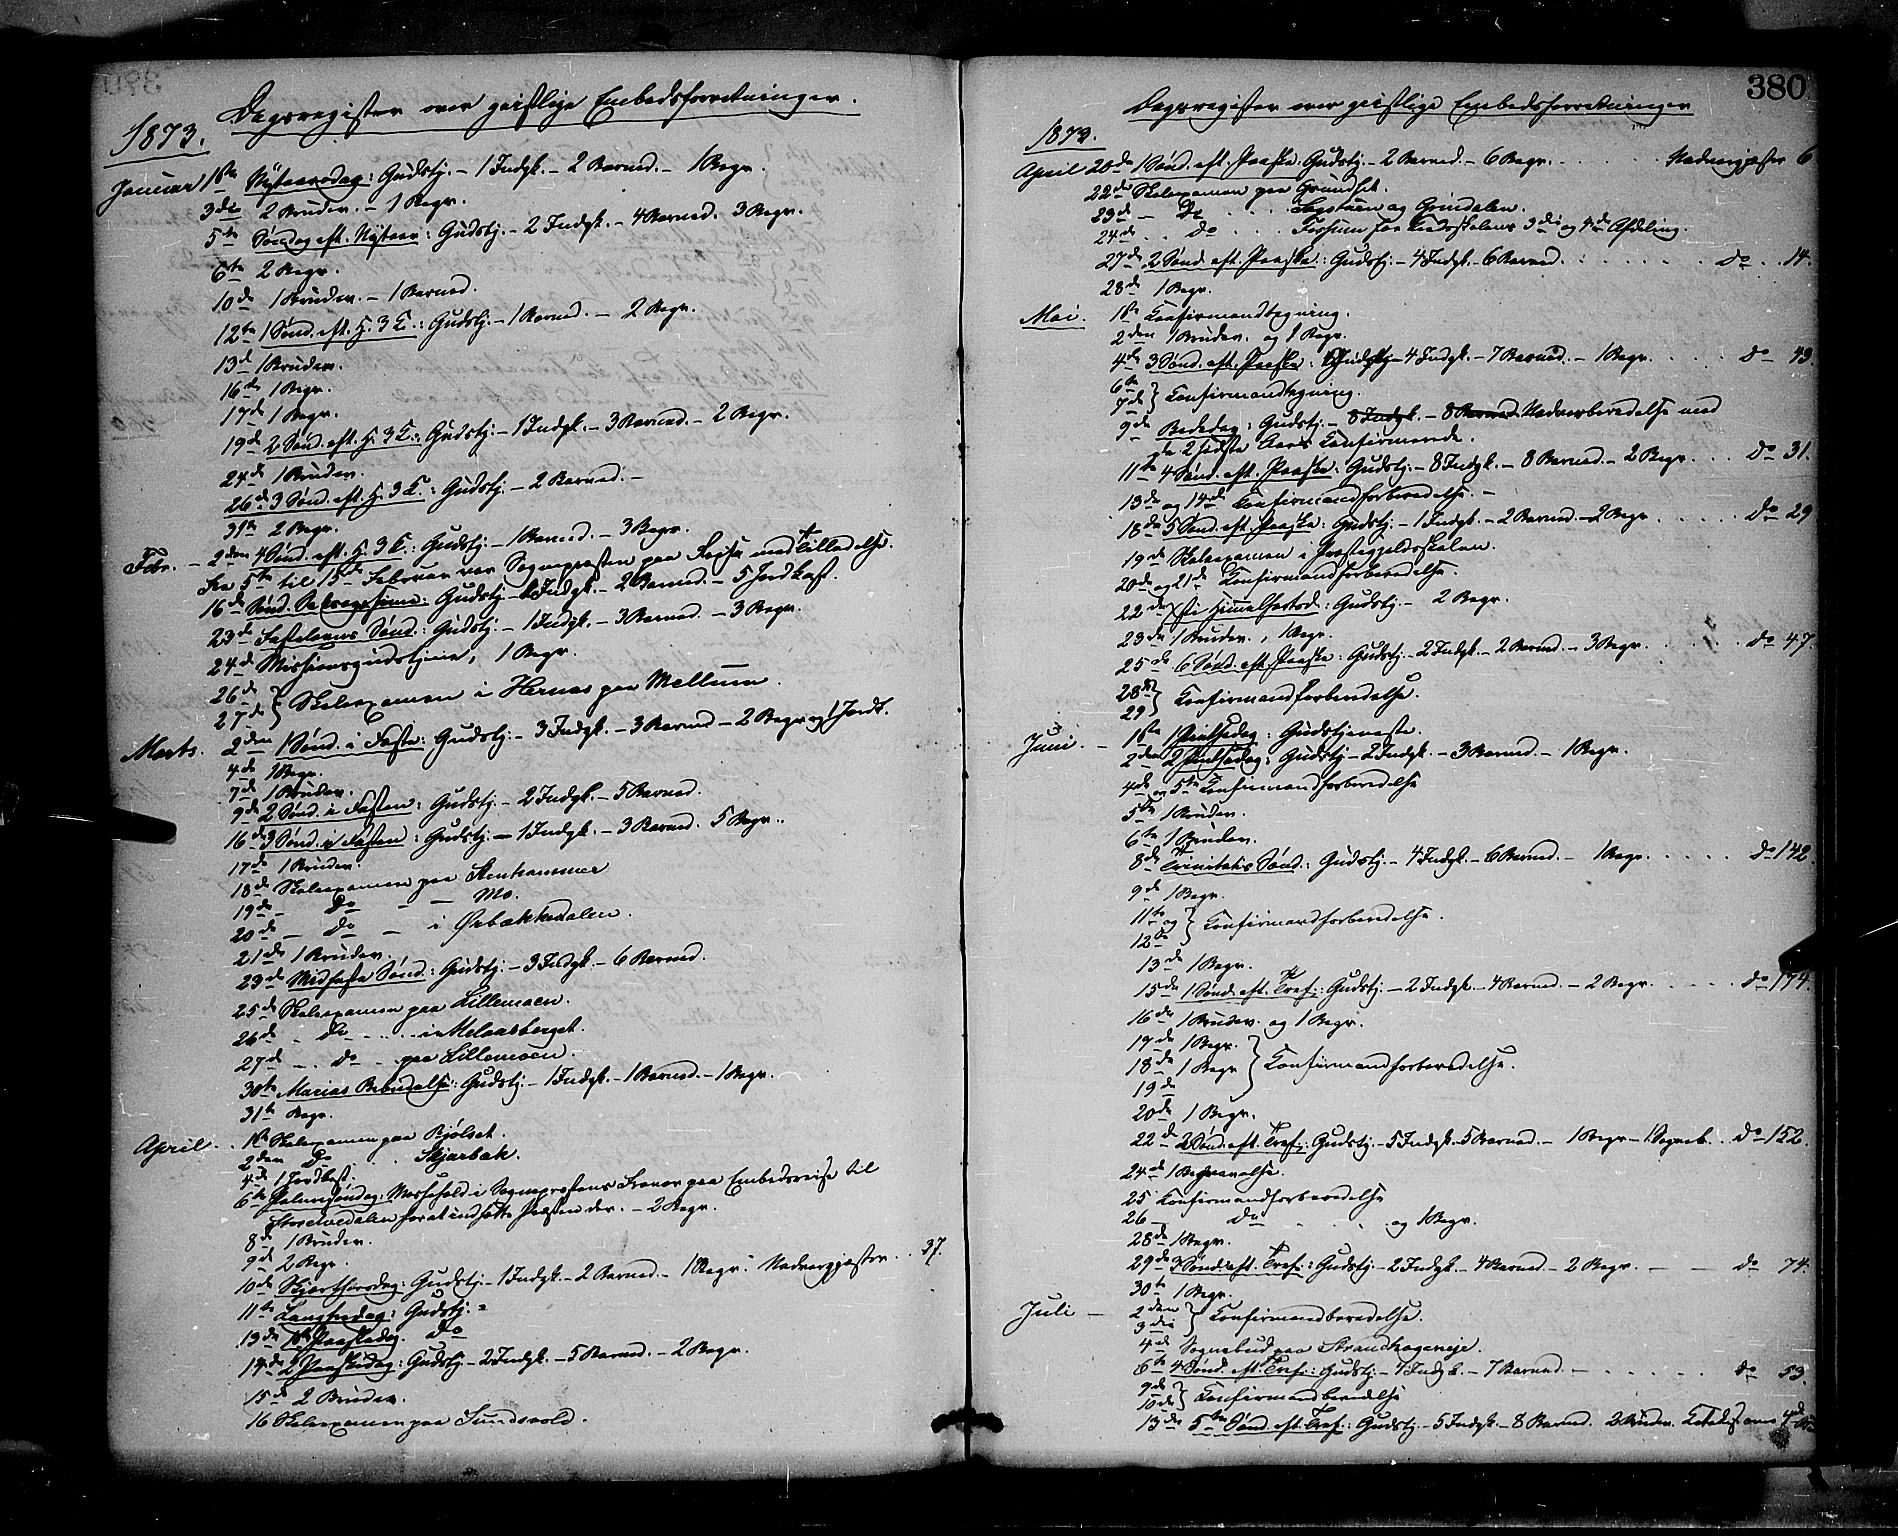 Dagsregister over geistlige Embedsforretninger.
1873.
Januar 1ste Nytaarsdag: Gudstj. – 1 Indgk. – 2 Barned. – 1 Begr.
3die 2 Brudev. – 1 Begr.
5te Søndag eft. Nytaar: Gudstj. – 2 Indgk. – 4 Barned. 3 Begr.
6te 2 Begr.
10de 1 Brudev. – 1 Barned.
12te 1 Sønd. eft. H. 3 K.: Gudstj. – 1 Barned. – 2 Begr.
13de 1 Brudev.
16de 1 Begr.
17de 1 Begr.
19de 2 Sønd. eft. H. 3 K.: Gudstj. – 1 Indgk. – 3 Barned. – 2 Begr.
24de 1 Brudev.
26de 3 Sønd. eft. H. 3 K.: Gudstj. – 2 Barned. –
31te 2 Begr.
Febr. – 2den 4 Sønd. eft. H. 3 K.: Gudstj. – 1 Barned. – 3 Begr.
Fra 5te til 15de Februar var Sognepresten paa Reise med Tilladelse.
16de Sønd. Sexagesima: Gudstj. – Indgk. – 2 Barned. – 5 Jordkast.
23de Fastelavns Sønd.: Gudstj. – 1 Indgk. – 3 Barned. – 3 Begr.
24de Missionsgudstjene, 1 Begr.
26de
27de } Skoleexamen i Hernes paa Mellum.
Marts. 2den 1 Sønd. i Faste: Gudstj. – 3 Indgk. – 3 Barned – 2 Begr. og 1 Jordk.
4de 1 Begr.
7de 1 Brudev.
9de 2 Sønd. i Fasten: Gudstj. – 2 Indgk. – 5 Barned.
16de 3 Sønd. i Fasten: Gudstj. – 1 Indgk. – 3 Barned. 5 Begr.
17de 1 Brudev.
18de Skoleexamen paa Stenhammer
19de – Do – – Mo.
20de – Do – i Ørbækkedalen.
21de 1 Brudev.
23de Midfaste Sønd.: Gudstj. – 3 Indgk. – 6 Barned.
25de Skoleexamen paa Lillemoen.
26de – Do – i Melaasberget.
27de – Do – paa Lillemoen.
30te Marias Bebudelse: Gudstj. – 1 Indgk. – 1 Barned. – 1 Begr.
31te Begr.
April 1ste Skoleexamen paa Bjølset.
2den Do Skjærbæk.
4de 1 Jordkast.
6te Palmesøndag: Messefald i Sogneprestens Fravær paa Embedsreise til
Storelvedalen for at indsætte Presten der. – 2 Begr.
8de 1 Brudev.
9de 2 Begr.
10de Skjærthorsdag: Gudstj. – 1 Indgk. – 2 Barned. – 1 Begr. Nadvergjester 37.
11te Langfredag: Gudstj. –
13de 1ste Paaskedag. Do
14de 2 Paaskedag: Gudstj. – 2 Indgk. – 5 Barned. – 2 Begr.
15de 2 Brudev.
16 Skoleexamen paa Sundsvold.
380
Dagsregister over geistlige Embedsforretninger
1873.
April 20de 1 Sønd. eft. Paaske: Gudstj. – 2 Barned. – 6 Begr. Nadvergjester 6
22de Skoleexamen paa Grundset.
23de – Do Løgstuen og Grindalen.
24de Do Fossum for Kredsskolens 3die og 4de Afdeling.
27de 2 Sønd. eft. Paaske: Gudstj. – 4 Indgk. – 6 Barned. Do 14.
28de 1 Begr.
Mai. 1ste Confirmandtegning.
2den 1 Brudev. og 1 Begr.
4de 3 Sønd. eft. Paaske: Gudstj. – 4 Indgk. – 7 Barned. – 1 Begr. Do 43.
6te
7de } Confirmandtegning.
9de Bededag: Gudstj. – 8 Indgk. – 8 Barned. Nadverberedelse med
de 2 sidste Aars Confirmerede.
11te 4 Sønd. eft. Paaske: Gudstj. – 8 Indgk. – 8 Barned. – 2 Begr. Do 31.
13de og 14de Confirmandforberedelse. –
18de 5 Sønd. eft. Paaske: Gudstj. – 1 Indgk. – 2 Barned. – 2 Begr. Do 29
19de Skoleexamen i Prestegjeldsskolen.
20de og 21de Confirmandforberedelse.
22de Xsti Himmelfartsd.: Gudstj. – 2 Begr.
23de 1 Brudev., 1 Begr.
25de 6 Sønd. eft. Paaske: Gudstj. – 2 Indgk. – 2 Barned. – 3 Begr. Do 47.
28de
29 } Confirmandforberedelse.
Juni. – 1ste 1 Pintsedag: Gudstjeneste.
2den 2 Pintsedag: Gudstj. – 2 Indgk. – 3 Barned. – 1 Begr.
4de og 5te Confirmandforberedelse
5te 1 Brudev.
6te 1 Brudev.
8de Trinitatis Sønd.: Gudstj. – 4 Indgk. – 6 Barned. – 1 Begr. Do 142.
9de 1 Begr.
11te og
12te } Confirmandforberedelse.
13de 1 Begr.
15de 1 Sønd. eft. Tref.: Gudstj. – 2 Indgk. – 4 Barned. – 2 Begr. Do 174.
16de 1 Brudev. og 1 Begr.
17de 1 Begr.
18de 1 Begr } Confirmandforberedelse.
19de
20de 1 Begr.
22de 2 Sønd. eft. Tref.: Gudstj. – 5 Indgk. 5 Barned. – 1 Begr. – 1 Sogneb. Do 152.
24de 1 Begravelse.
25 Confirmandforberedelse
26 – Do og 1 Begr.
28de 1 Begr.
29de 3 Sønd. eft. Tref.: Gudstj. – 2 Indgk. – 4 Barned. – 2 Begr. – – Do 74.
30te 1 Begr.
Juli – 2den
3die } Confirmandberedelse.
4de Sognebud paa Strandhageneje.
6te 4 Sønd. eft. Tref.: Gudstj. – 4 Indgk. – 7 Barned. – Do 53.
9de
10de } Confirmandberedelse
13de 5te Sønd. eft. Tref.: Gudstj. – 5 Indgk. – 8 Barned. 2 Brudev.